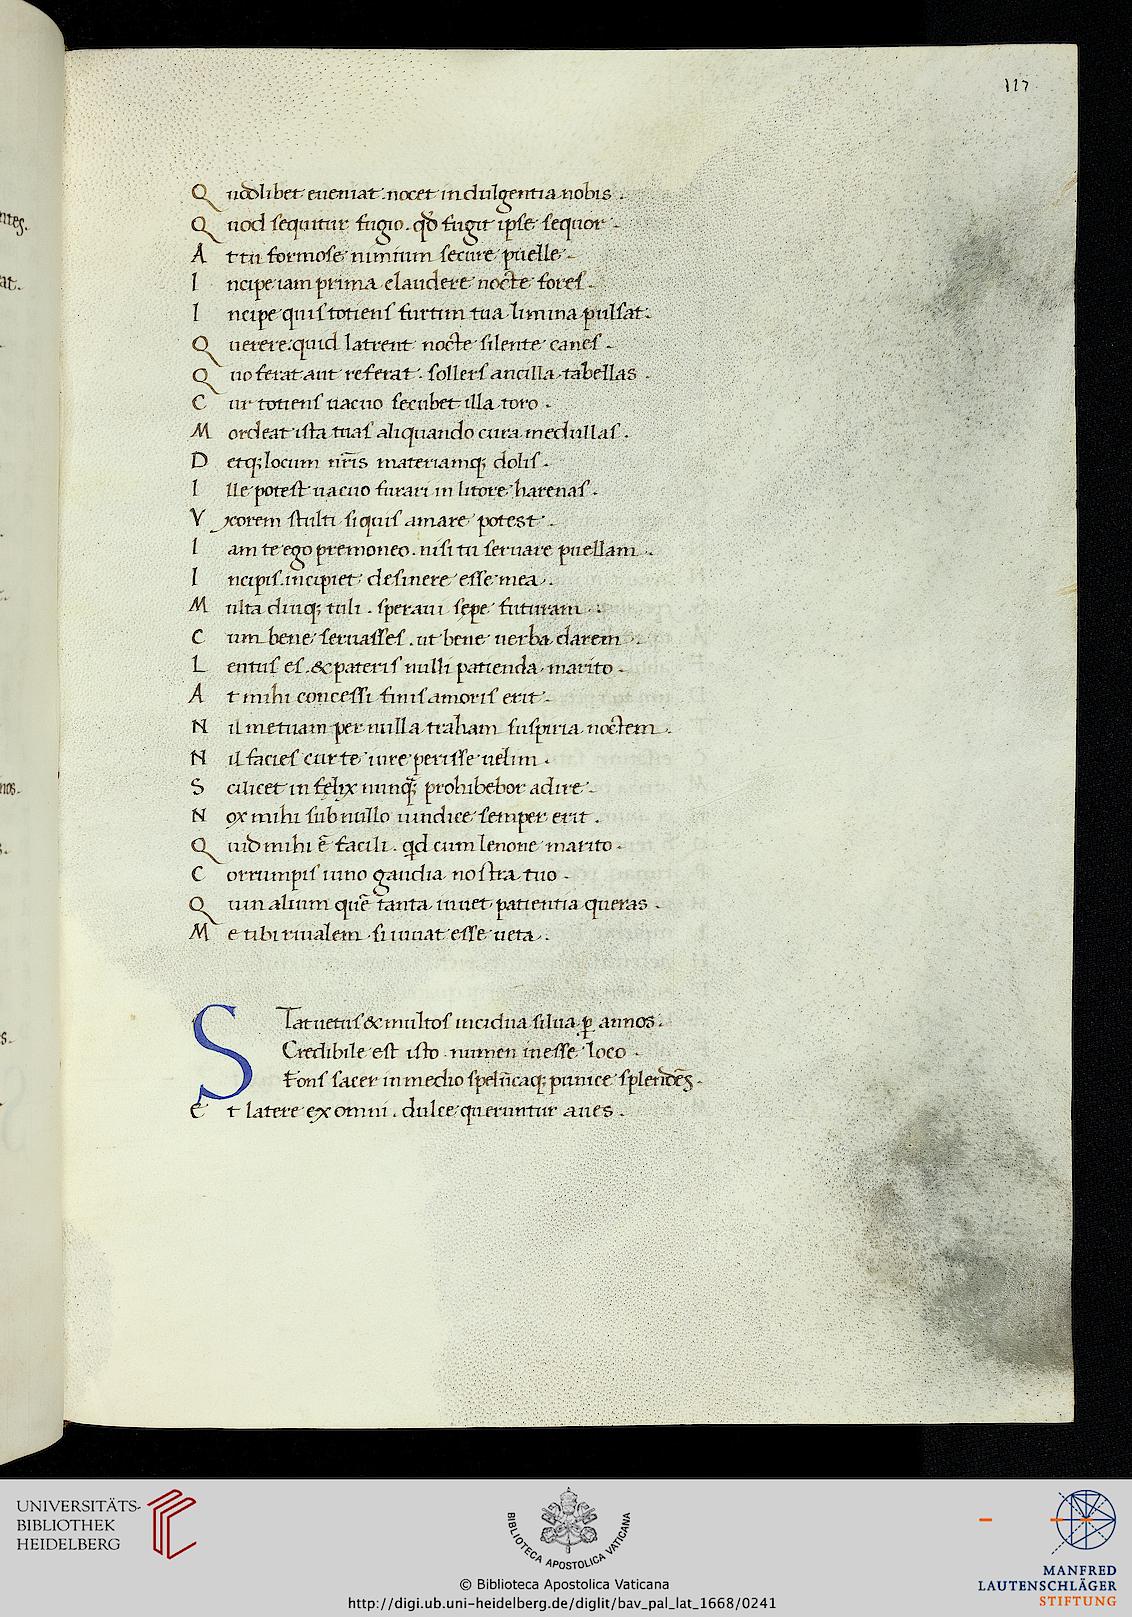 117
Quodlibet eueniat . nocet indulgentia nobis .
Quod sequitur fugio . qđ fugit ipse sequor .
At tu formose nimium secure puelle .
Incipe iam prima claudere nocte fores .
Incipe quis totiens furtim tua limina pulsat .
Querere . quid latrent nocte silente canes .
Quo ferat aut referat . sollers ancilla tabellas .
Cur totiens uacuo secubet illa toro .
Mordeat ista tuas aliquando cura medullas .
Detq; locum nr̄is materiamq; dolis .
Ille potest uacuo furari in litore harenas .
Vxorem stulti siquis amare potest .
Iam te ego premoneo . nisi tu seruare puellam .
Incipis . incipiet desinere esse mea .
Multa diuq; tuli . speraui sępe futuram .
Cum bene seruasses . ut bene uerba darem .
Lentus es . & pateris nulli patienda marito .
At mihi concessi finis amoris erit .
Nil metuam per nulla traham suspiria noctem .
Nil facies cur te iure perisse uelim .
Scilicet infelix nunq̄; prohibebor adire .
Nox mihi sub nullo uindice semper erit .
Quid mihi ē facili . qd cum lenone marito .
Corrumpis iuno gaudia nostra tuo .
Quin alium quē tanta iuuet patientia queras .
Me tibi riualem si iuuat esse ueta .
STat uetus & multos incidua silua ꝑ annos .
Credibile est isto numen inesse loco .
Fons sacer in medio spelūcaq; pumice splendēs .
Et latere ex omni . dulce queruntur aues .
UNIVERSITÄTS-
BIBLIOTHEK
HEIDELBERG
BIBLIOTECA APOSTOLICA VATICANA
© Biblioteca Apostolica Vaticana
http://digi.ub.uni-heidelberg.de/diglit/bav_pal_lat_1668/0241
MANFRED
LAUTENSCHLÄGER
STIFTUNG